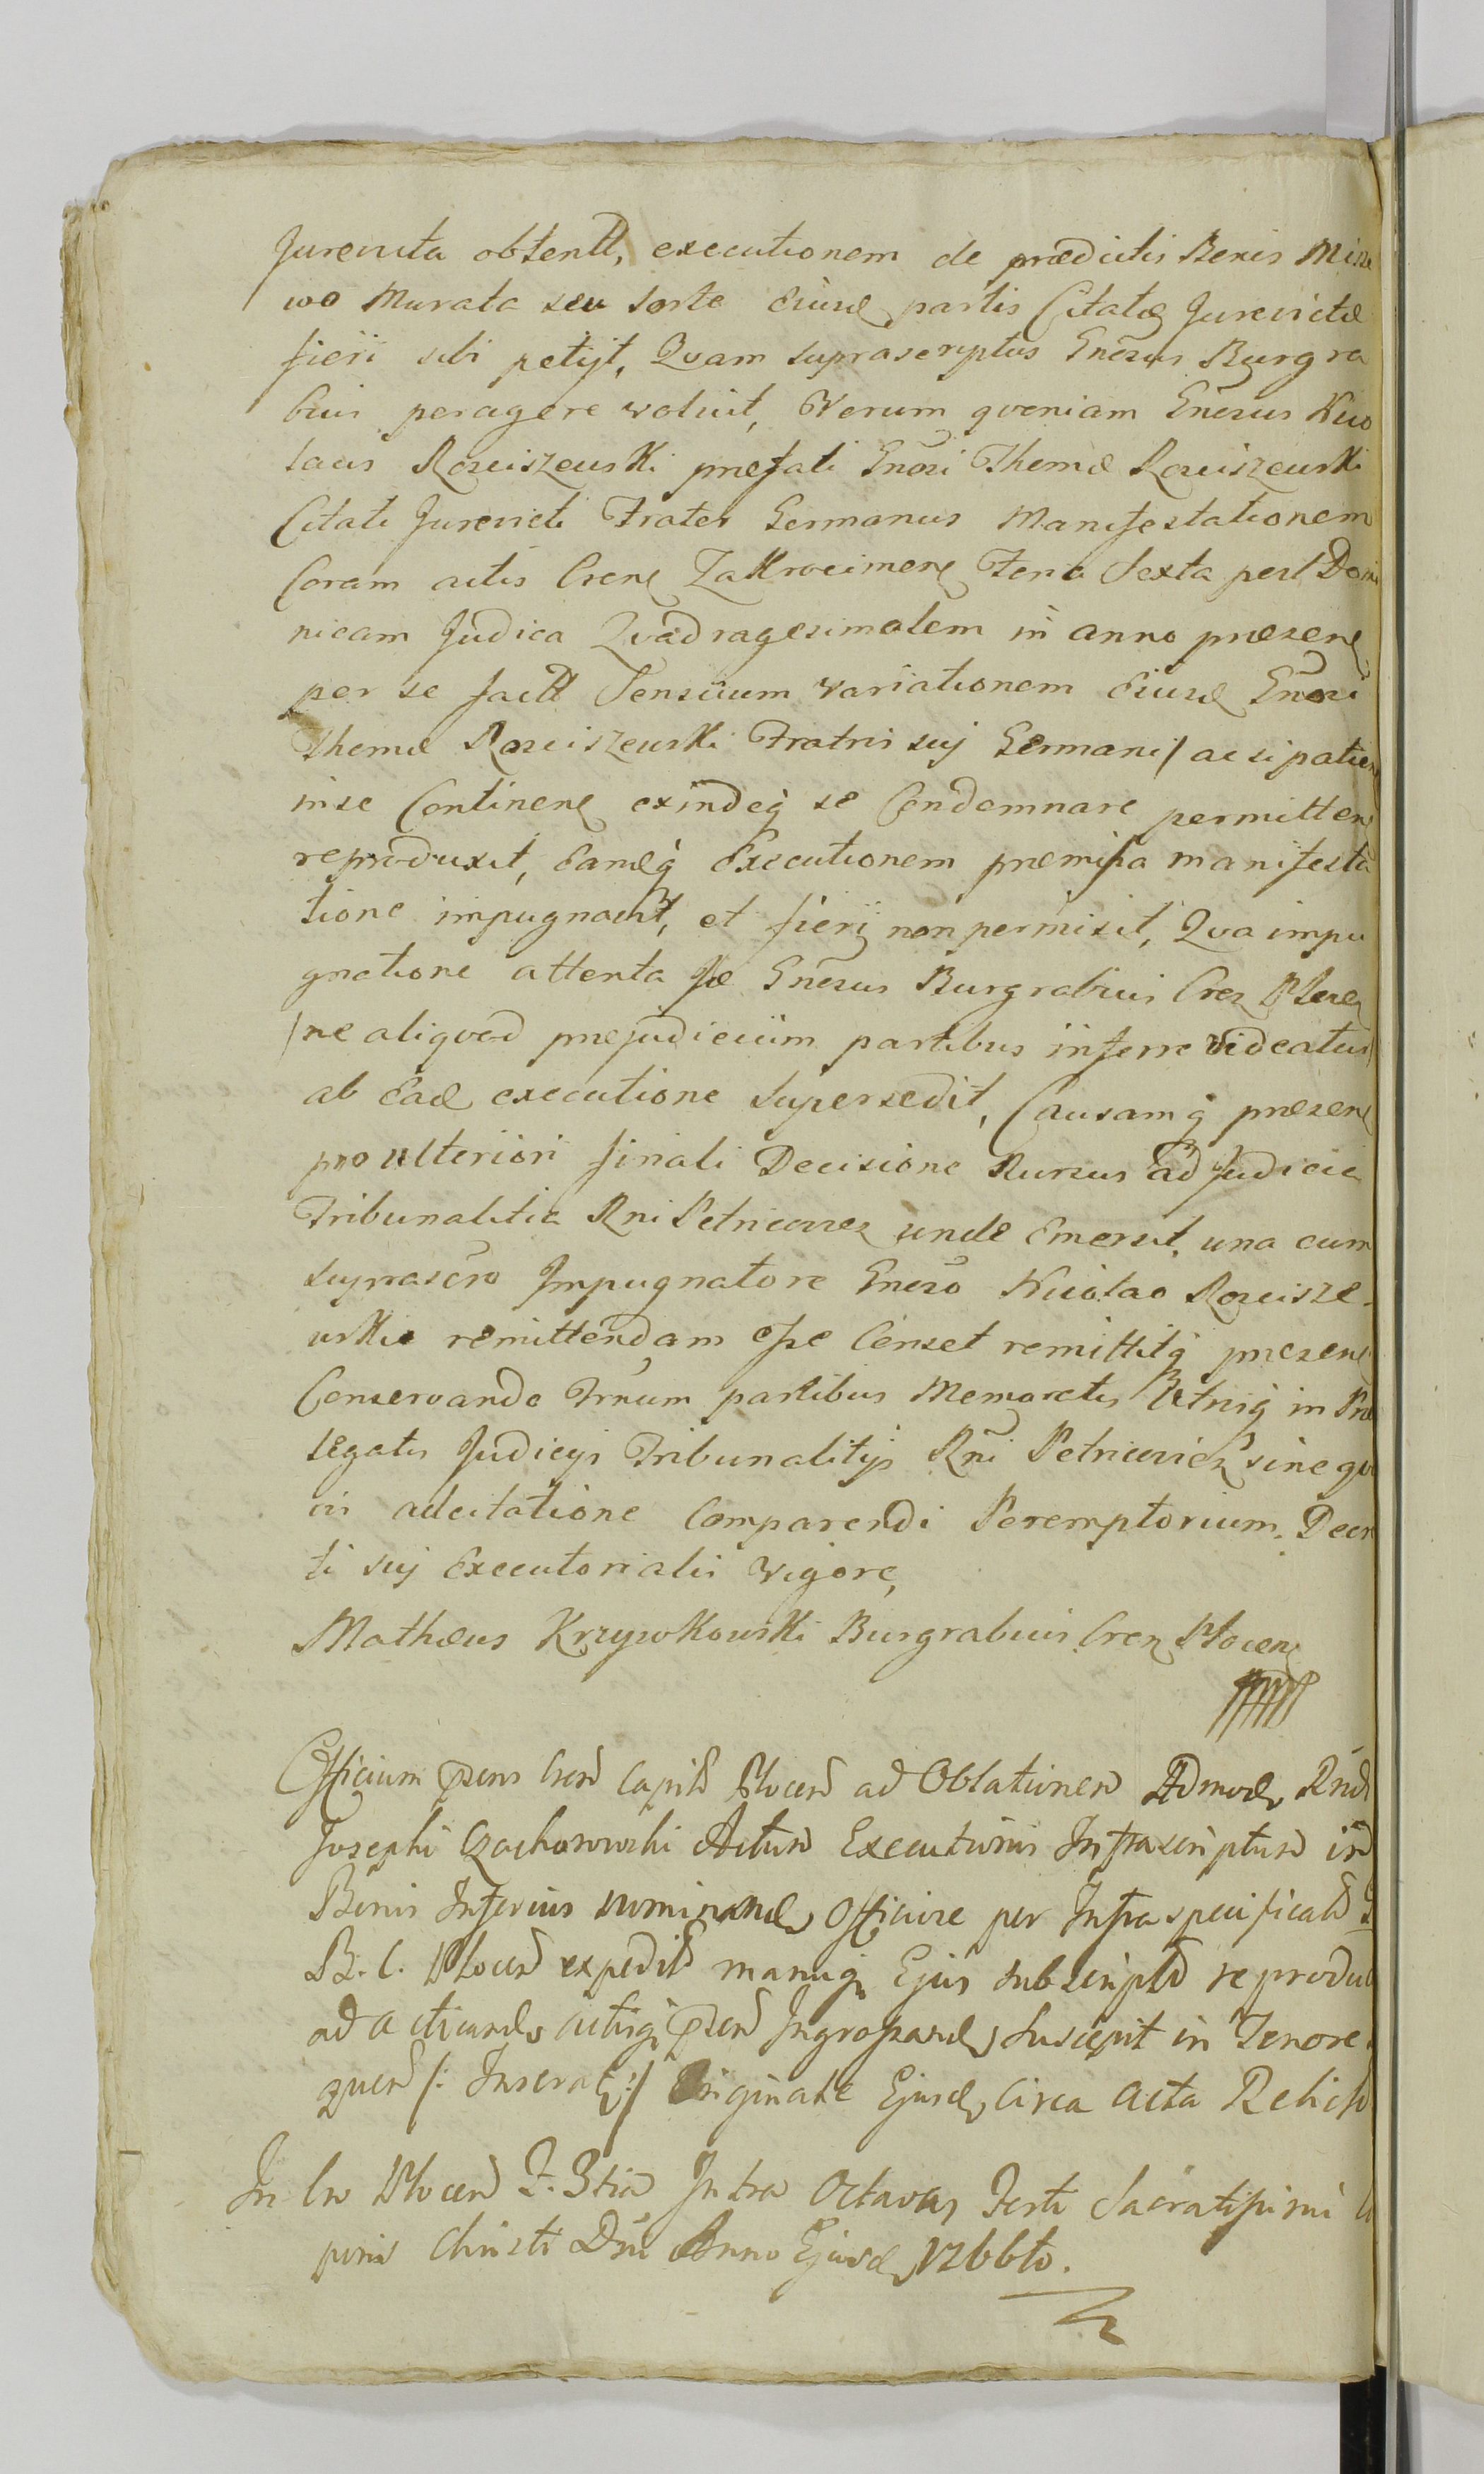 Jurevicta obtentt, executionem de prædictis Bonis Misze
wo Murata seu Sorte Eiusd partis Citatæ Jurevictæ
fieri sibi petijt, Quam suprascriptus Gnerus Burgra
bius peragere voluit, Verum qvoniam Gnerus Nico
laus Rosciszewski præfati Gnosi Thomæ Rosciszewski
Citati Jurevicti Frater Germanus Manifestationem
Coram actis Cren Zakrocimen Feria Sexta post Domi
nicam Judica Qvadragesimalem in anno præsen
per se factt Sensuum variationem Eiusd Gnosi
Thomæ Rosciszewski Fratris suj Germani / ac si patien
in se Continen exindeq se Condemnare permitten
reproduxit, Eamdq Executionem præmissa manifesta
tione impugnavit, et fierij non permisit, Qva impu
gnatione attenta Idē Gnerus Burgrabius Cren Plocen
/ne aliqvod præjudicium partibus inferre videatur/
ab Eadē executione supersedit, Causamq præsen
pro ulteriori finali Decisione Rursus ad Judicia
Tribunalitia Rni Petricovien unde Emersit, una cum
suprascro Impugnatore Gneso Nicolao Roscisze-
wskio remittendam esse Censet remittitq præsen
Conservando Trnum partibus Memoratis Utrisq in Præ
legatis Judicijs Tribunalitijs Rni Petricovien sine qu
vis adcitatione Comparendi Peremptorium. Decre
ti suj Executorialis vigore,
Mathæus Krzywkowski Burgrabius Cren Plocen
Officium præns Cren Capitl Plocen ad Oblationem Admod Rndi
Josephi Czachorowski Actum Executionis Infrascriptum in
Bonis Inferius nominand Officiose per Infra specificatum
B. C. Plocen expeditt manuq Ejus subscriptt reprodu
ad acticand actisq præn Ingrossand, Suscepit in Tenore
quen /: Inserat:/ Originale Ejusd, Circa Acta Relict
In Cro Plocen F. 3tia Intra Octavas Festi Sacratissimi Co
poris Christi Dni Anno Ejusd, 1766to.